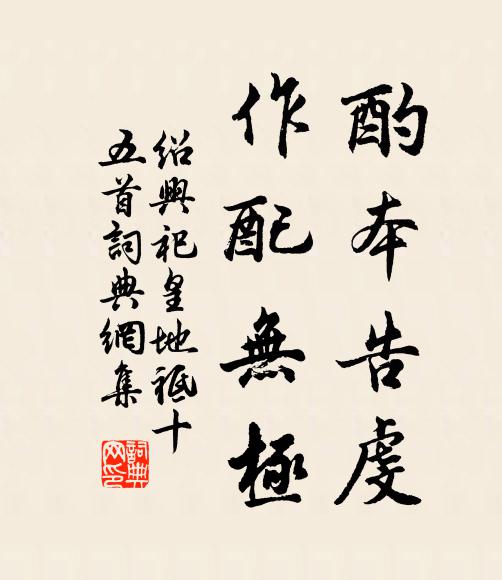 酌本告虔
作配無極
紹興祀皇地祇十
五首詞典網集
詞典網印